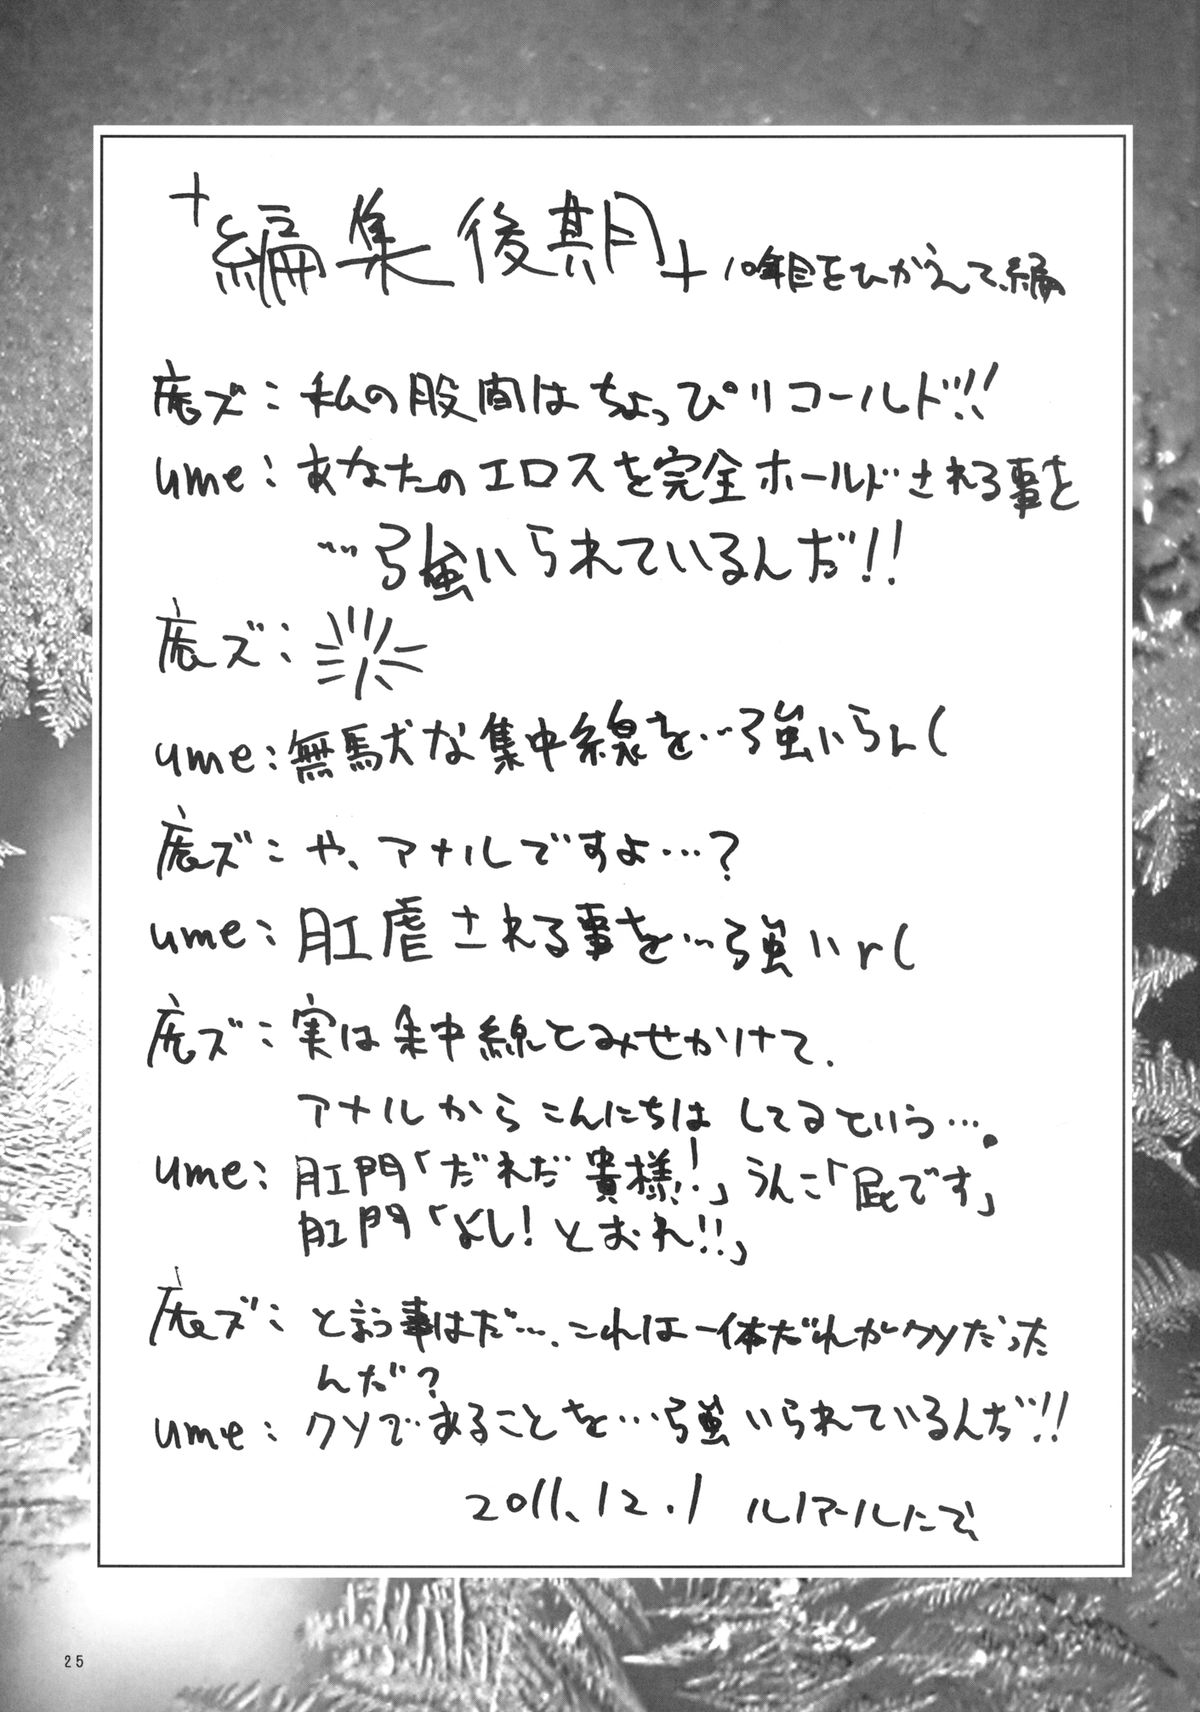 +編集後期+ 10年目をひかえて、編
庵ズ：私の股間はちょっぴりコールド!!!
ume：あなたのエロスを完全ホールドされる事を
…強いられているんだ!!
庵ズ：
ume：無駄な集中線を…強いられ(
庵ズ：や、アナルですよ…？
ume：肛虐される事を…強いr(
庵ズ：実は集中線とみせかけて、
アナルからこんにちはしてるという…。
ume：肛門「だれだ貴様!」うんこ「屁です」
肛門「よし!とおれ!!」
庵ズ：と言う事はだ…、これは一体だれがクソだった
んだ？
ume：クソであることを…強いられているんだ!!
2011.12.1 ルノアールにて、
25